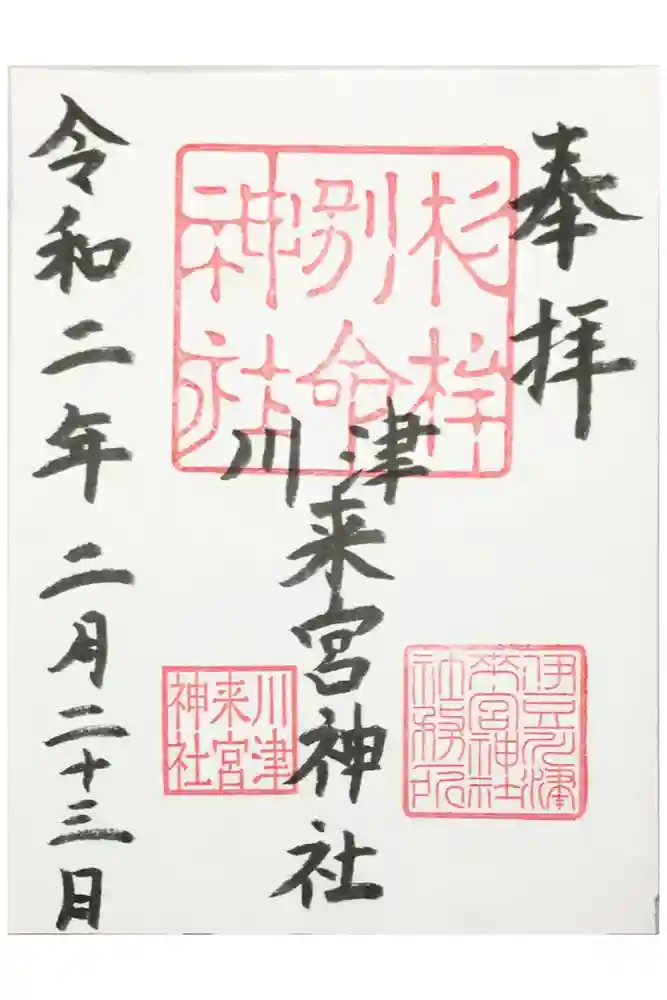 奉拝
杉桙
別命
神社
川津
来宮神社
川津
来宮
神社
社務所
令和二年二月二十三日